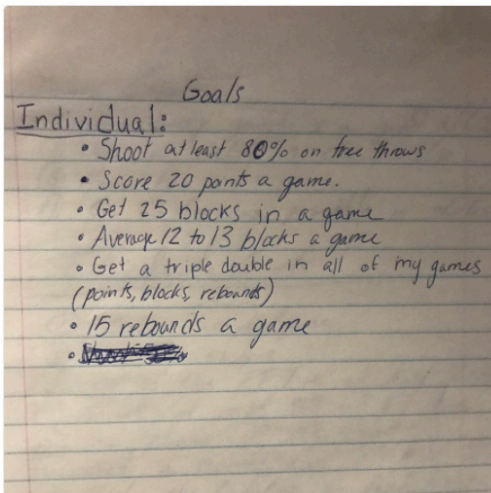 Goals
Individual:
• Shoot at least 80% on free throws
• Score 20 points a game.
• Get 25 blocks in a game
• Average 12 to 13 blocks a game
• Get a triple double in all of my games
(points, blocks, rebounds)
• 15 rebounds a game
•